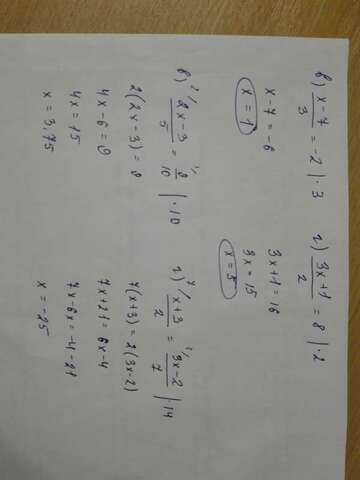 в) (x-7)/3 = -2 | · 3
x-7 = -6
x = 1
г) (3x+1)/2 = 8 | · 2
3x+1 = 16
3x = 15
x = 5
в) 2/ (2x-3)/5 = 1/ 9/10 | · 10
2(2x-3) = 9
4x-6 = 9
4x = 15
x = 3,75
г) 7/ (x+3)/2 = 2/ (3x-2)/7 | · 14
7(x+3) = 2(3x-2)
7x+21 = 6x-4
7x-6x = -4-21
x = -25